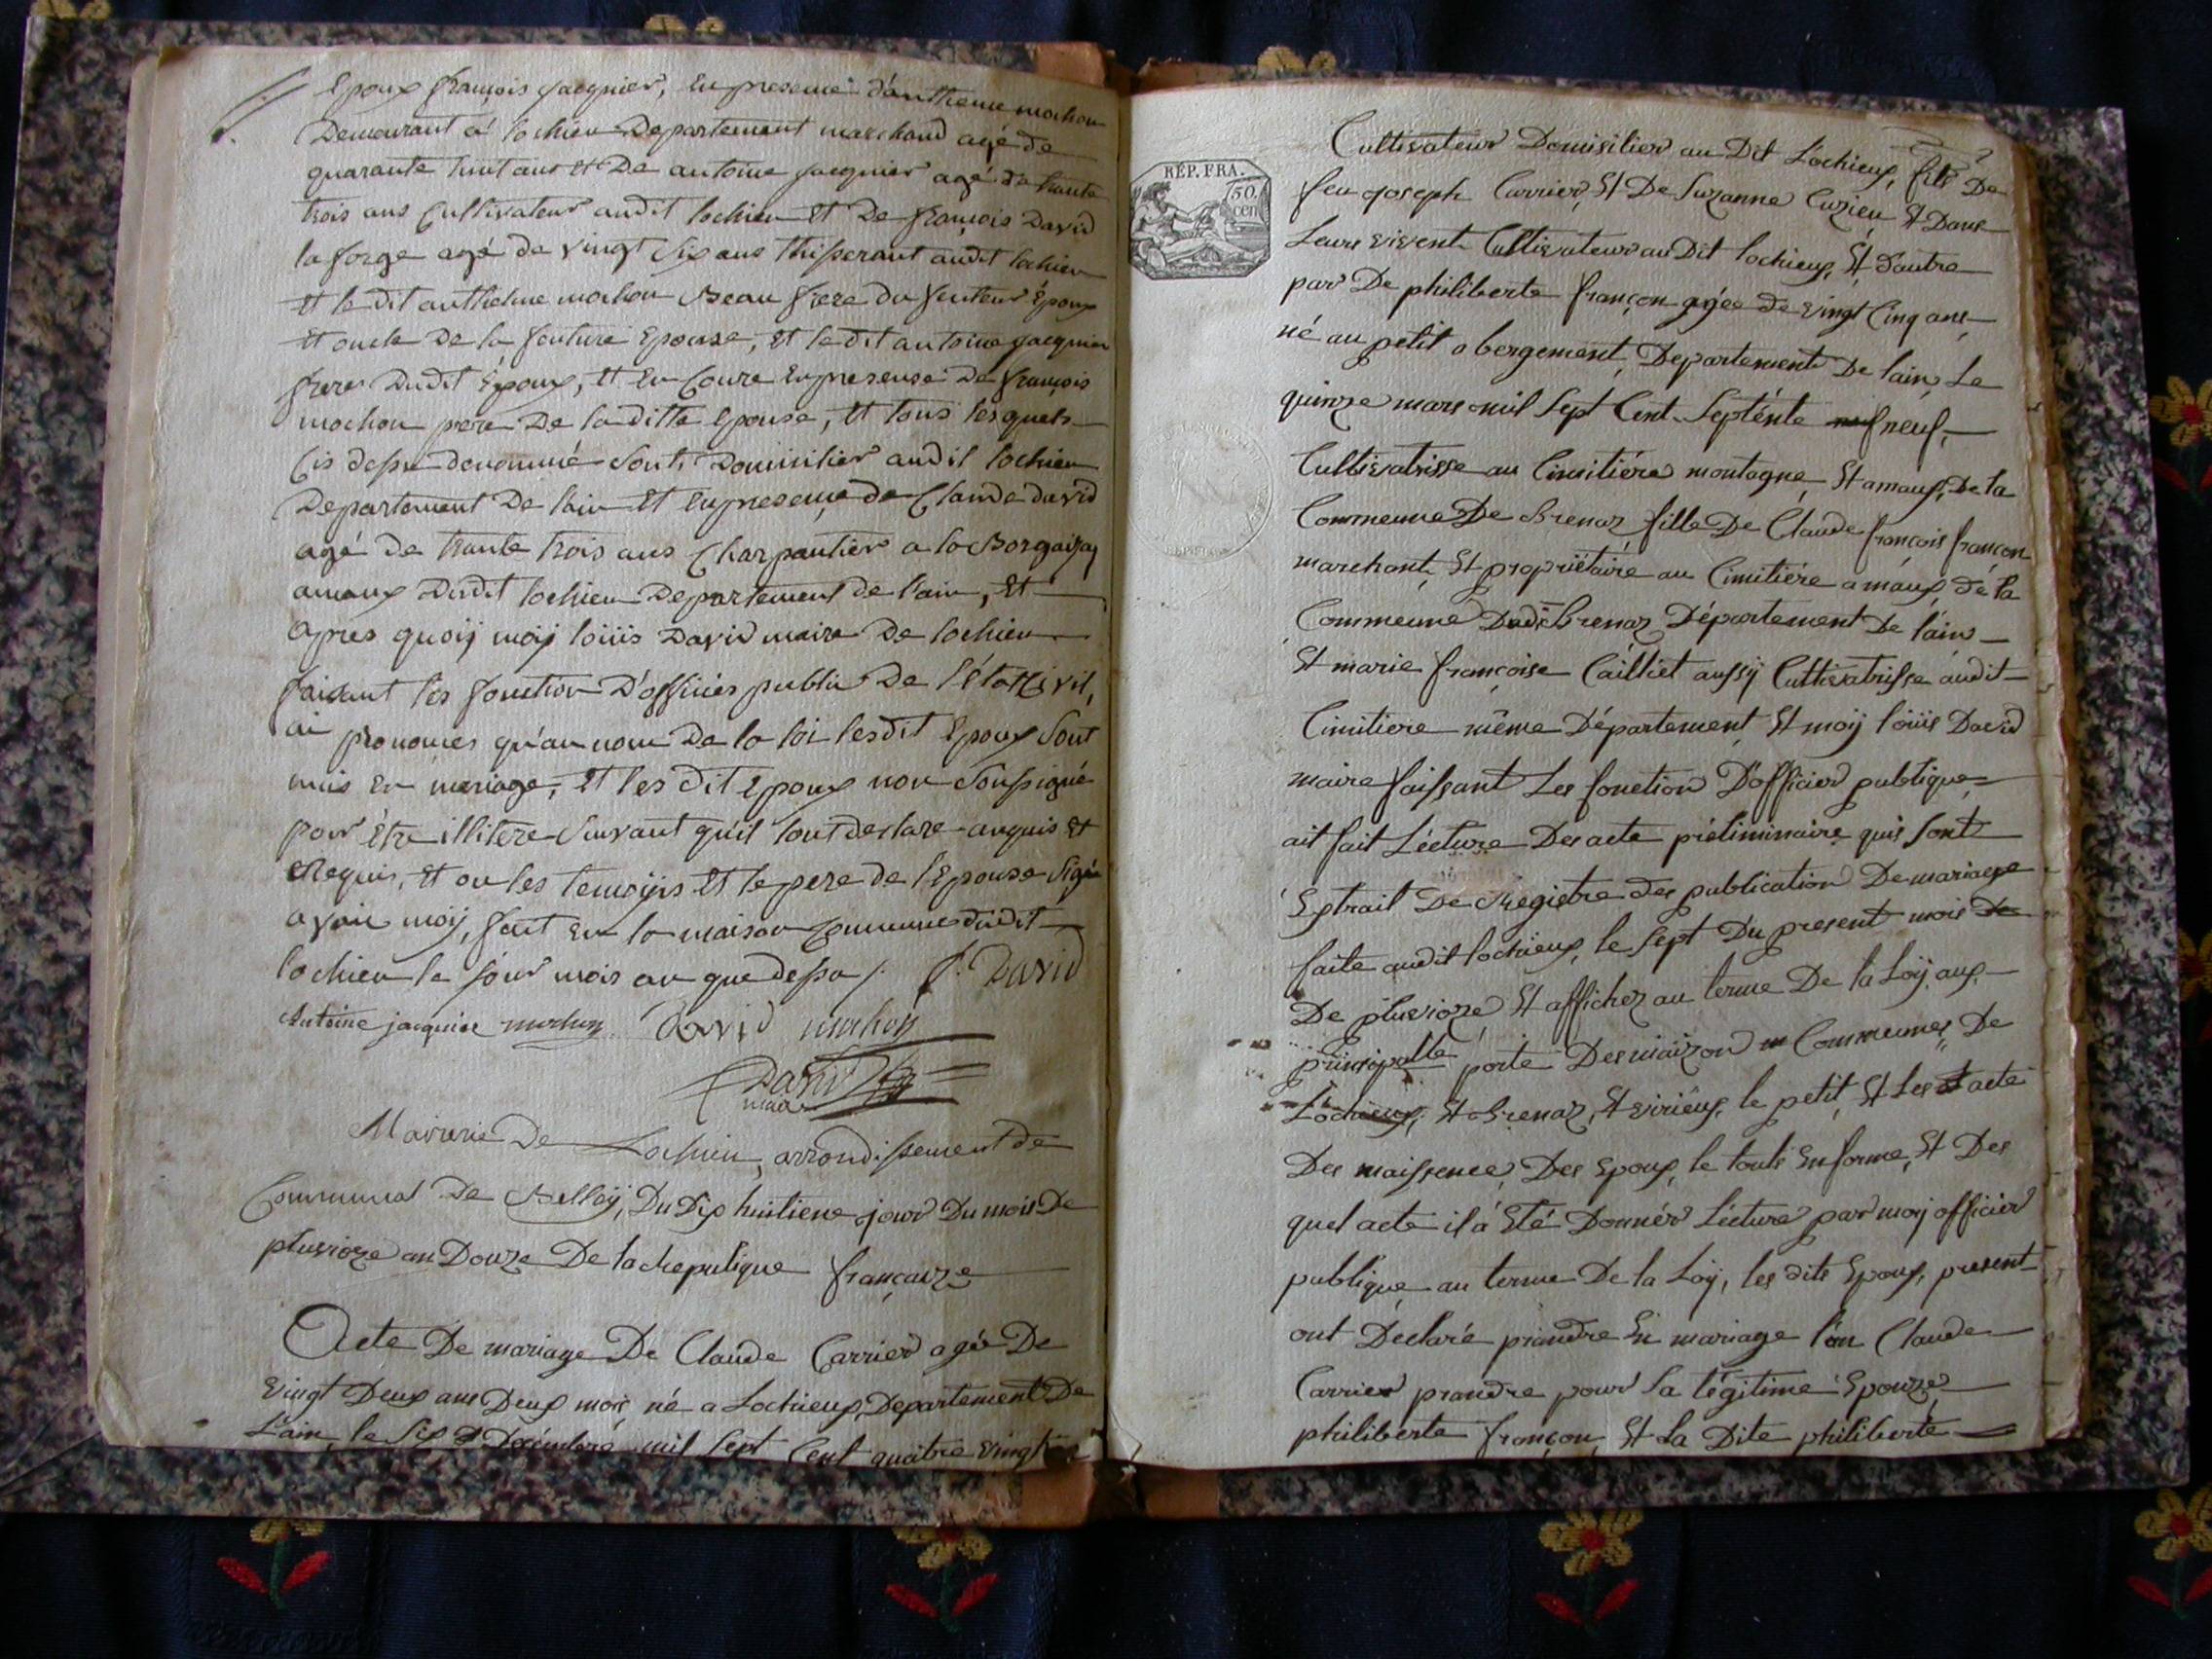 Epoux françois jacquier, en presence d'antheme mochon
Demeurant a lochieu Departement marchand agé de
quarante huit ans et De antoine jacquier agé de trante
trois ans Cultivateur audit lochieu et De françois David
la forge agé de vingt six ans audit lochieu
et le dit anthelme mochon Beau frere du futeur Epoux
et oncle de la futture Epouse, et le dit antoine jacquier
frere Dudit Epoux, et En Coure En presense De françois
mochon pere De la ditte Epouse, et tous lesquels
Cis desu denommé sont Domicilier audit lochieu
Departement De lain et En presence de Claude david
agé de trante trois ans Charpantier a
ameux Dudit lochieu Departement de l'ain, et
apres quoij moij loüis David maire De lochieu
faisant les fonction D'officier public De l'état Civil,
ai pronomcés qu'au nom De la loi lesdit Epoux sont
unis En mariage, et les dit Epoux non Soussigné
pour être illitere suivant qu'il l'ont declare anquis et
Requis, et ou les temoijns et le pere de l'Epouse signé
avaic moij, fait En la maison commune dudit
lochieu le jour mois an que desu /. f. David
Antoine jacquier mochon David mochon
David
maire
Mairerie De Lochieu, arrondissement de
Communal De Belleÿ, Du Dix huitiene jour Du mois De
pluvioze an Douze De la Republique françaize
Acte De mariage De Claude Carrier agée De
vingt Deux ans Deux mois né a Lochieux, Departement De
L'ain, le six Decembre mil Sept Cent quatre vingt
RÉP. FRA.
50.
cen
Cultivateur Domisilier au Dit Lochieux, fils De
feu Joseph Carrier, Et De Suzanne Cuzieu Et Dans
Leurs vivent Cultivateur au Dit lochieux, Et d'autre
par De philiberte françon agée de vingt Cinq ans
né au petit abergement, Departement De lain, Le
quinze mars mil Sept Cent Septente neuf,
Cultivatrisse au Cimitiére montagne, Et amaux, De la
Commeune De Brenaz fille De Claude françois françon
marchant, Et propriétaire au Cimitiére amaux, de la
Commeune Dudit Brenaz Département De l'ain
Et marie françoise Cailliet aussÿ Cultivatrisse audit
Cimitiere même Département, Et moÿ loüis David
maire faissant Les fonction D'officier publique
ait fait Lécture Des acte préliminaire quis sont
Extrait De Registre des publication De mariage
faite audit lochieux, le sept Du present mois De
De pluvioze Et afficher au terme De la Loÿ, aux
principalle porte Des maizon Commeunes De
Lochieux, Et Brenaz, Et virieux le petit, Et Les acte
Des naissence, Des Epoux, le touts En forme, Et Des
quel acte il á Eté Donnér Lécture par moy officier
publique au terme De la Loÿ, les dits Epoux, present
ont Déclaré prandre En mariage l'un Claude
Carrier prandre pour Sa légitime Epouze
philiberte françon, Et La Dite philiberte